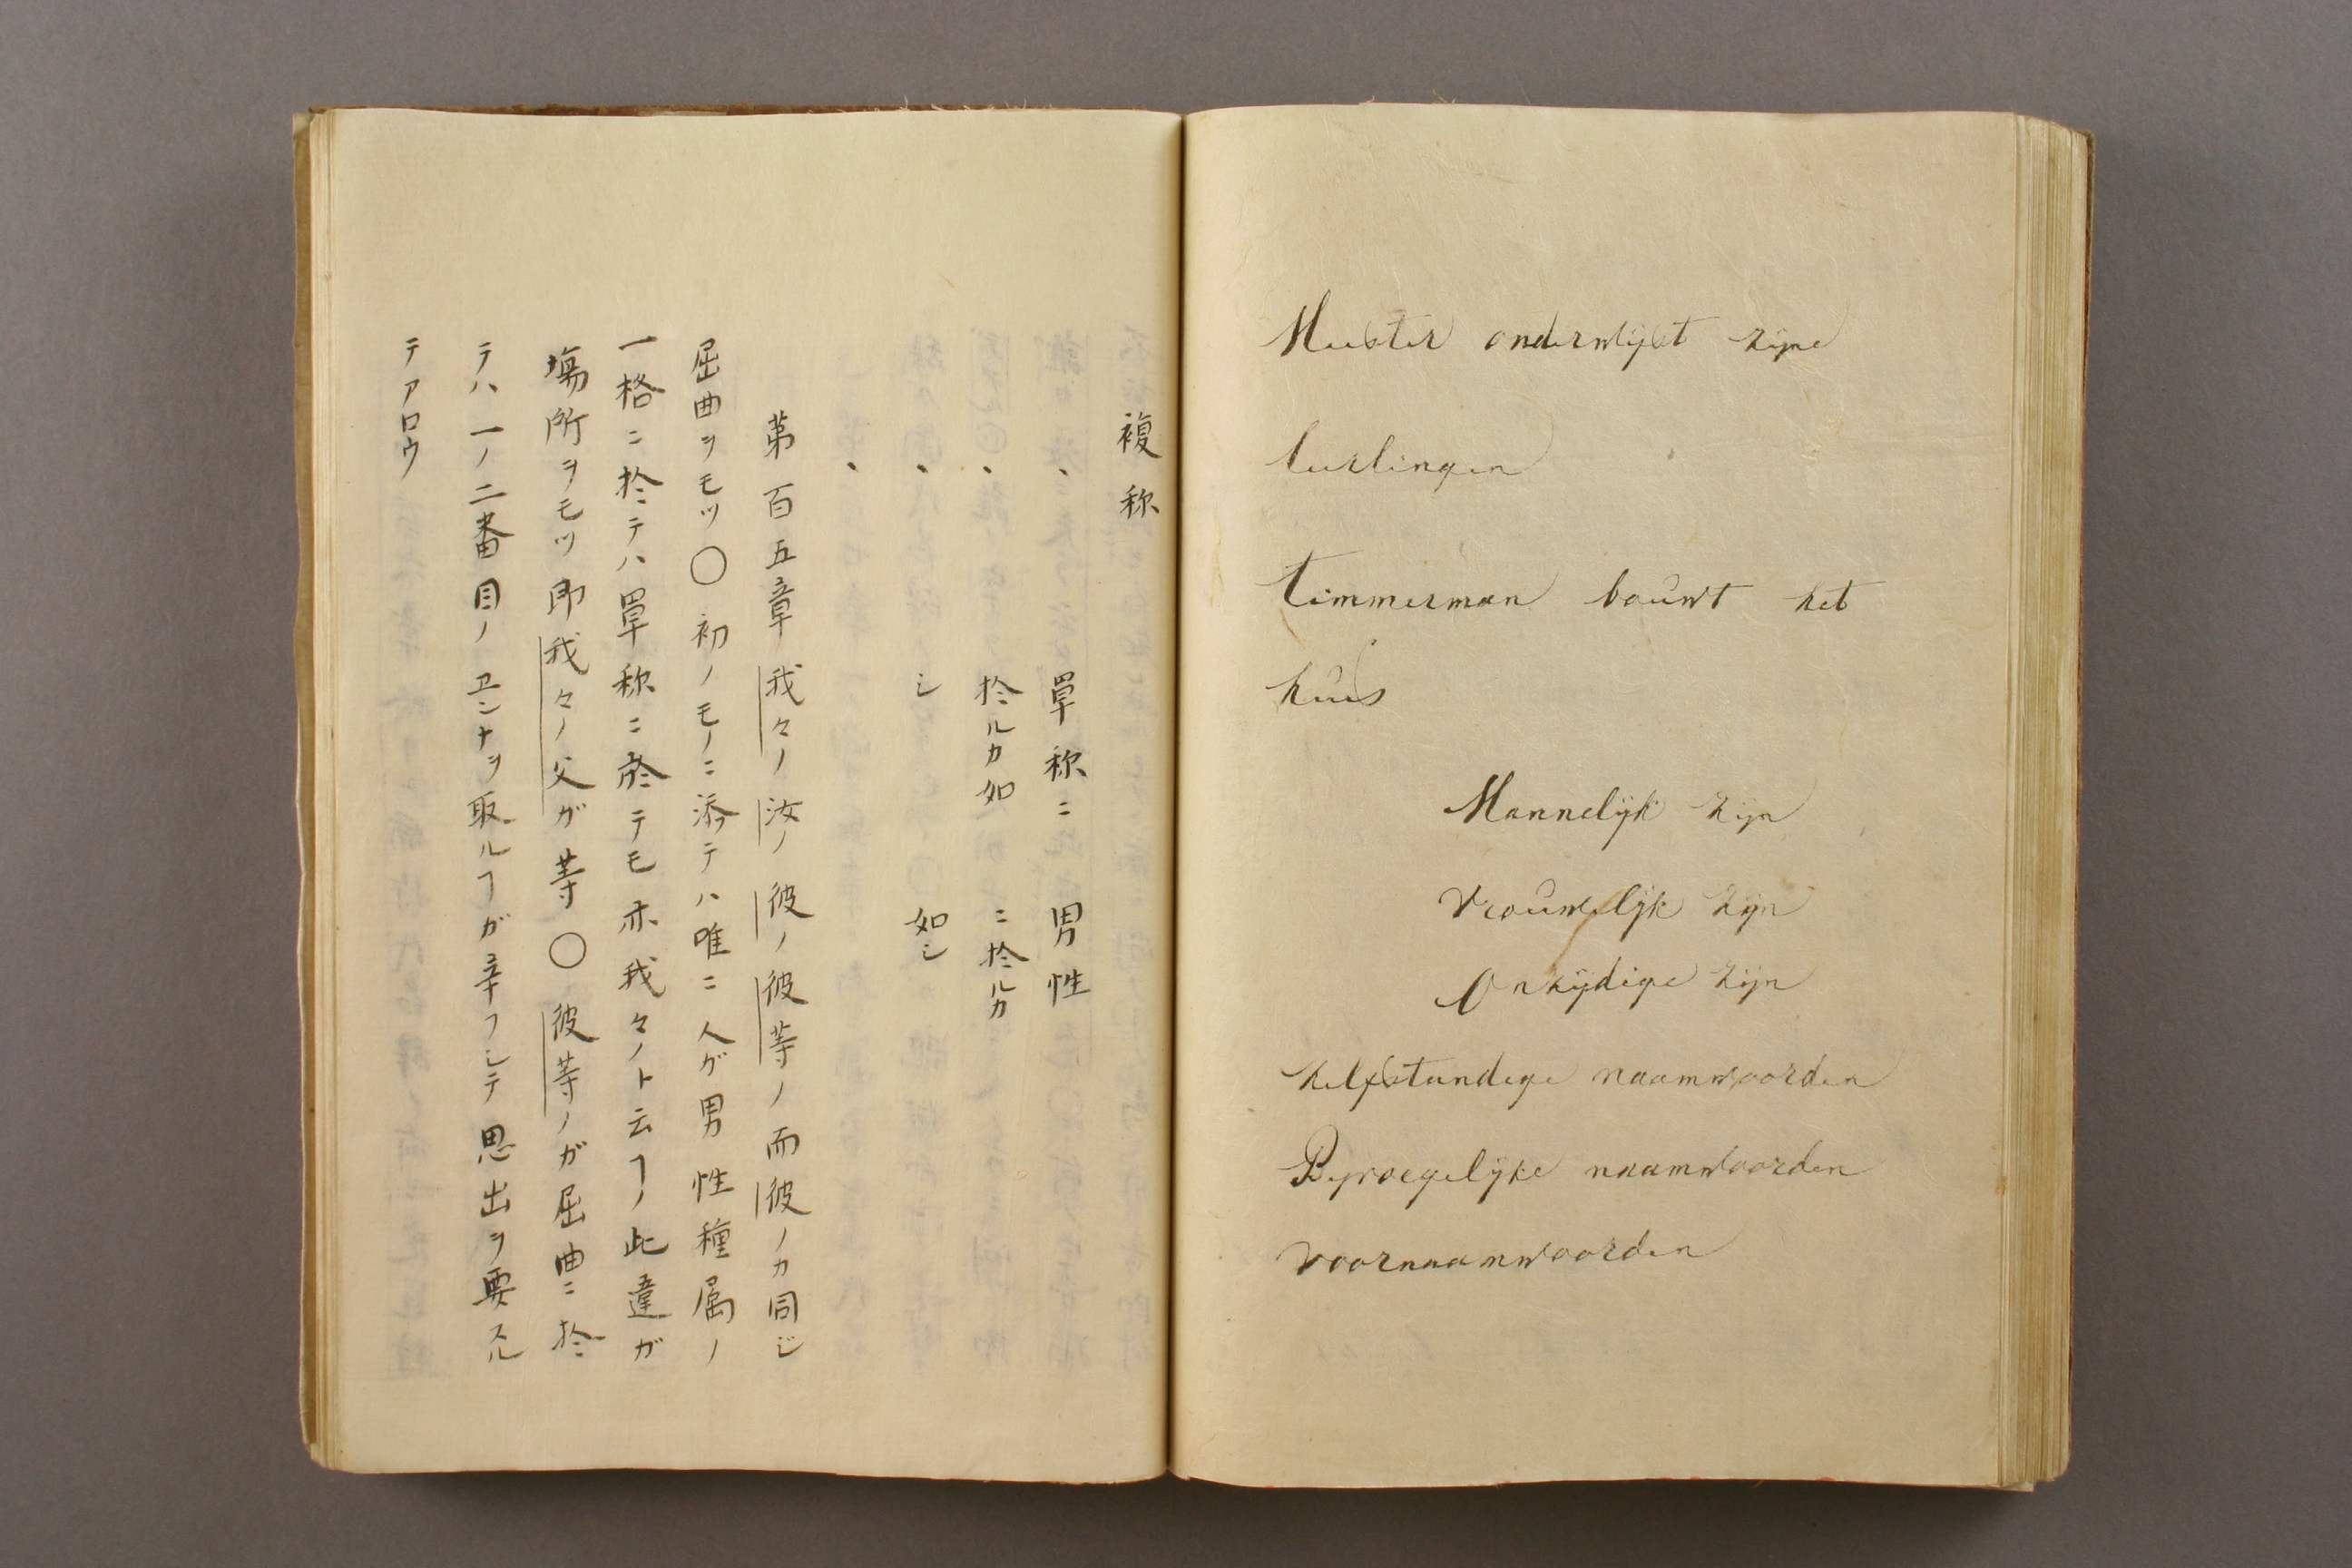 Meester onderwijst zijne
leerlingen
timmerman bouwt het
huis
Mannelijk zijn
vrouwelijk zijn
Onzijdige zijn
zelfstandige naamwoorden
Bijvoegelijke naamwoorden
voornaamwoorden
複称
、 單称ニ 男性
、 於ルカ如 ニ於ルカ
、 シ 如シ
、
第百五章 我々ノ 汝ノ 彼ノ 彼等ノ 而彼ノカ同ジ
屈曲ヲモツ〇初ノモノニ添テハ唯ニ人ガ男性種属ノ
一格ニ於テハ單称ニ於テモ亦我々ノト云ヿノ此違ガ
塲所ヲモツ即我々ノ父ガ等〇彼等ノガ屈曲ニ於
テハ一ノ二番目ノヱンナヲ取ルヿガ辛フシテ思出ヲ要スル
テアロウ